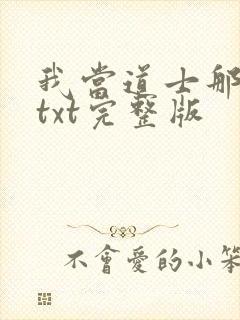 我當道士那
txt完整版
不會愛的小笨